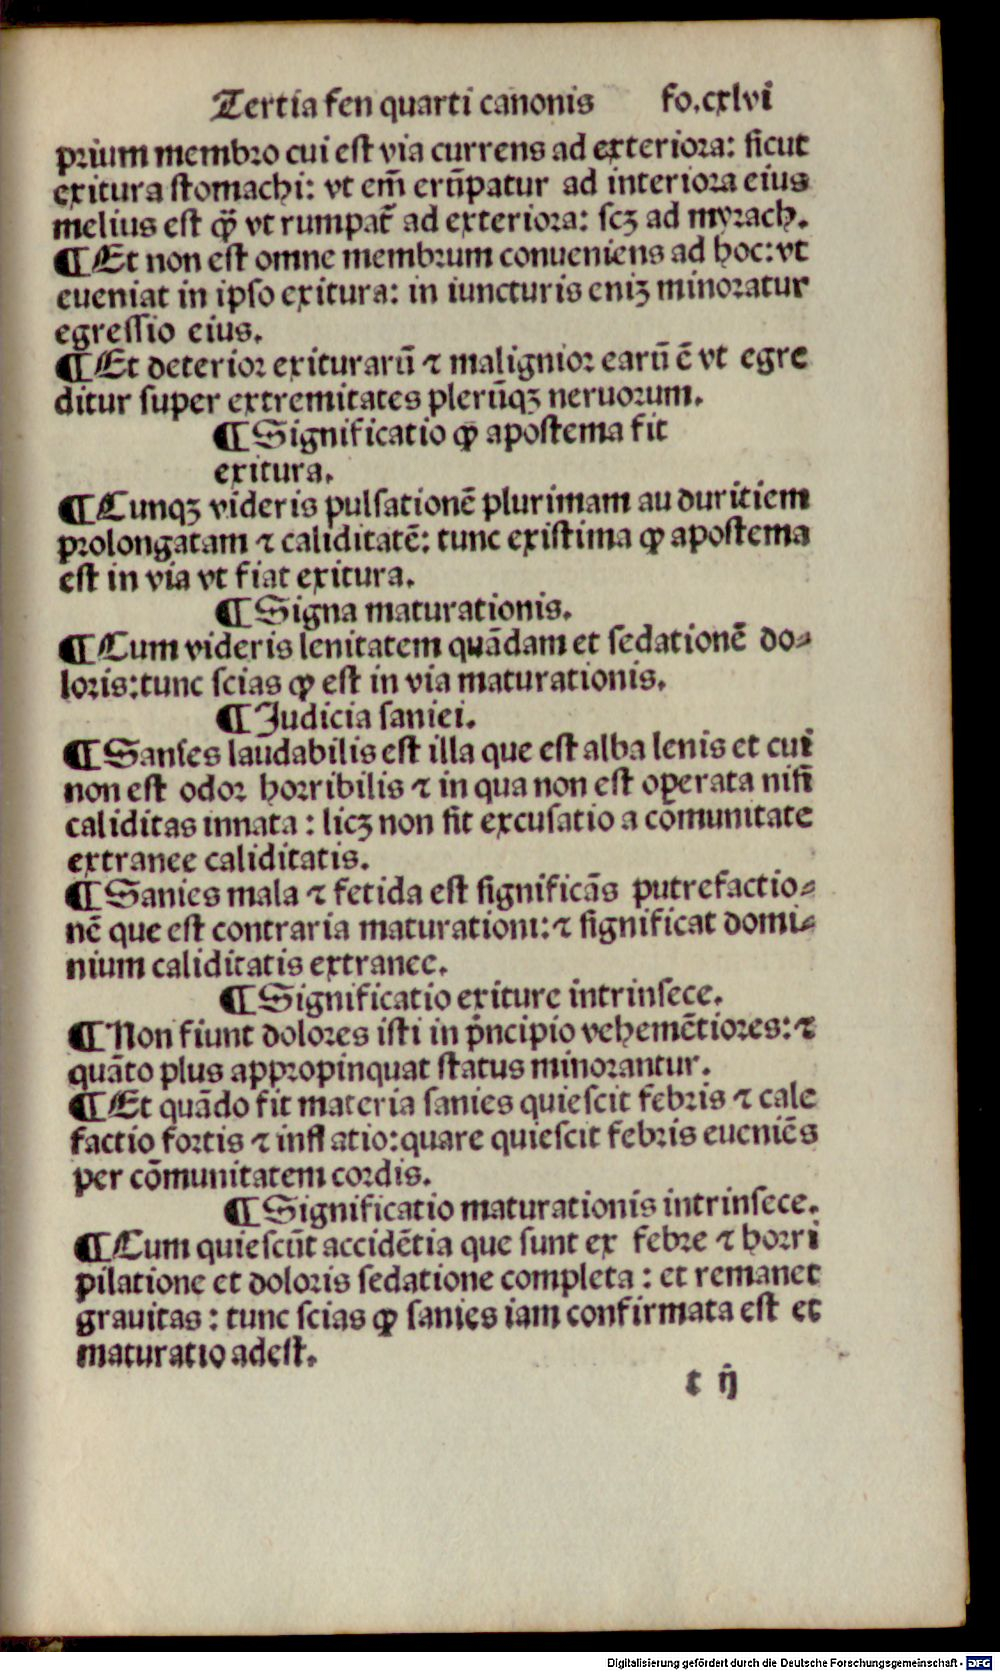 Tertia fen quarti canonis fo.cxlvi
prium membro cui est via currens ad exteriora: sicut
exitura stomachi: vt em̃ erũpatur ad interiora eius
melius est ꝙ̃ vt rumpat̃ ad exteriora: scꝫ ad myrach.
¶ Et non est omne membrum conueniens ad hoc: vt
eueniat in ipso exitura: in iuncturis eniꝫ minoratur
egressio eius.
¶ Et deterior exiturarũ ⁊ malignior earũ ẽ vt egre
ditur super extremitates plerũqꝫ neruorum.
¶ Significatio ꝙ apostema fit
exitura.
¶ Cunqꝫ videris pulsationẽ plurimam au duritiem
prolongatam ⁊ caliditatẽ: tunc existima ꝙ apostema
est in via vt fiat exitura.
¶ Signa maturationis.
¶ Cum videris lenitatem quãdam et sedationẽ do⸗
loris: tunc scias ꝙ est in via maturationis.
¶ Judicia saniei.
¶ Sanies laudabilis est illa que est alba lenis et cui
non est odor horribilis ⁊ in qua non est operata nisi
caliditas innata : licꝫ non sit excusatio a cõmunitate
extranee caliditatis.
¶ Sanies mala ⁊ fetida est significãs putrefactio⸗
nẽ que est contraria maturationi: ⁊ significat domi⸗
nium caliditatis extranee.
¶ Significatio exiture intrinsece.
¶ Non fiunt dolores isti in pͥncipio vehemẽtiores: ⁊
quãto plus appropinquat status minorantur.
¶ Et quãdo fit materia sanies quiescit febris ⁊ cale
factio fortis ⁊ inflatio: quare quiescit febris eueniẽs
per cõmunitatem cordis.
¶ Significatio maturationis intrinsece.
¶ Cum quiescũt accidẽtia que sunt ex febre ⁊ horri
pilatione et doloris sedatione completa : et remanet
grauitas : tunc scias ꝙ sanies iam confirmata est et
maturatio adest.
t ij
Digitalisierung gefördert durch die Deutsche Forschungsgemeinschaft - DFG